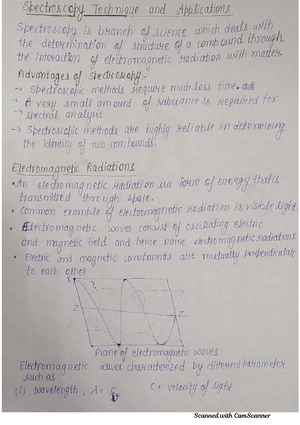 Spectroscopy Technique and Applications
Spectroscopy is branch of science which deals with
the determination of structure of a compound through
the interaction of electromagnetic radiation with matter.
Advantages of Spectroscopy:-
→ Spectroscopic methods require much less time.
→ A very small amount of substance is required for
→ spectral analysis.
→ Spectroscopic methods are highly reliable in determining
the identity of two compounds.
Electromagnetic Radiations
• An electromagnetic radiation is a form of energy that is
transmitted through space.
• Common example of electromagnetic radiation is visible light.
• Electromagnetic waves consist of oscillating electric
and magnetic field and hence name electromagnetic radiations
• Electric and magnetic components are mutually perpendicular
to each other
X Y
Z Z
Plane of electromagnetic waves
Electromagnetic waves characterized by different parameter
such as
(i) wavelength, λ = C/ν C → velocity of light
Scanned with CamScanner